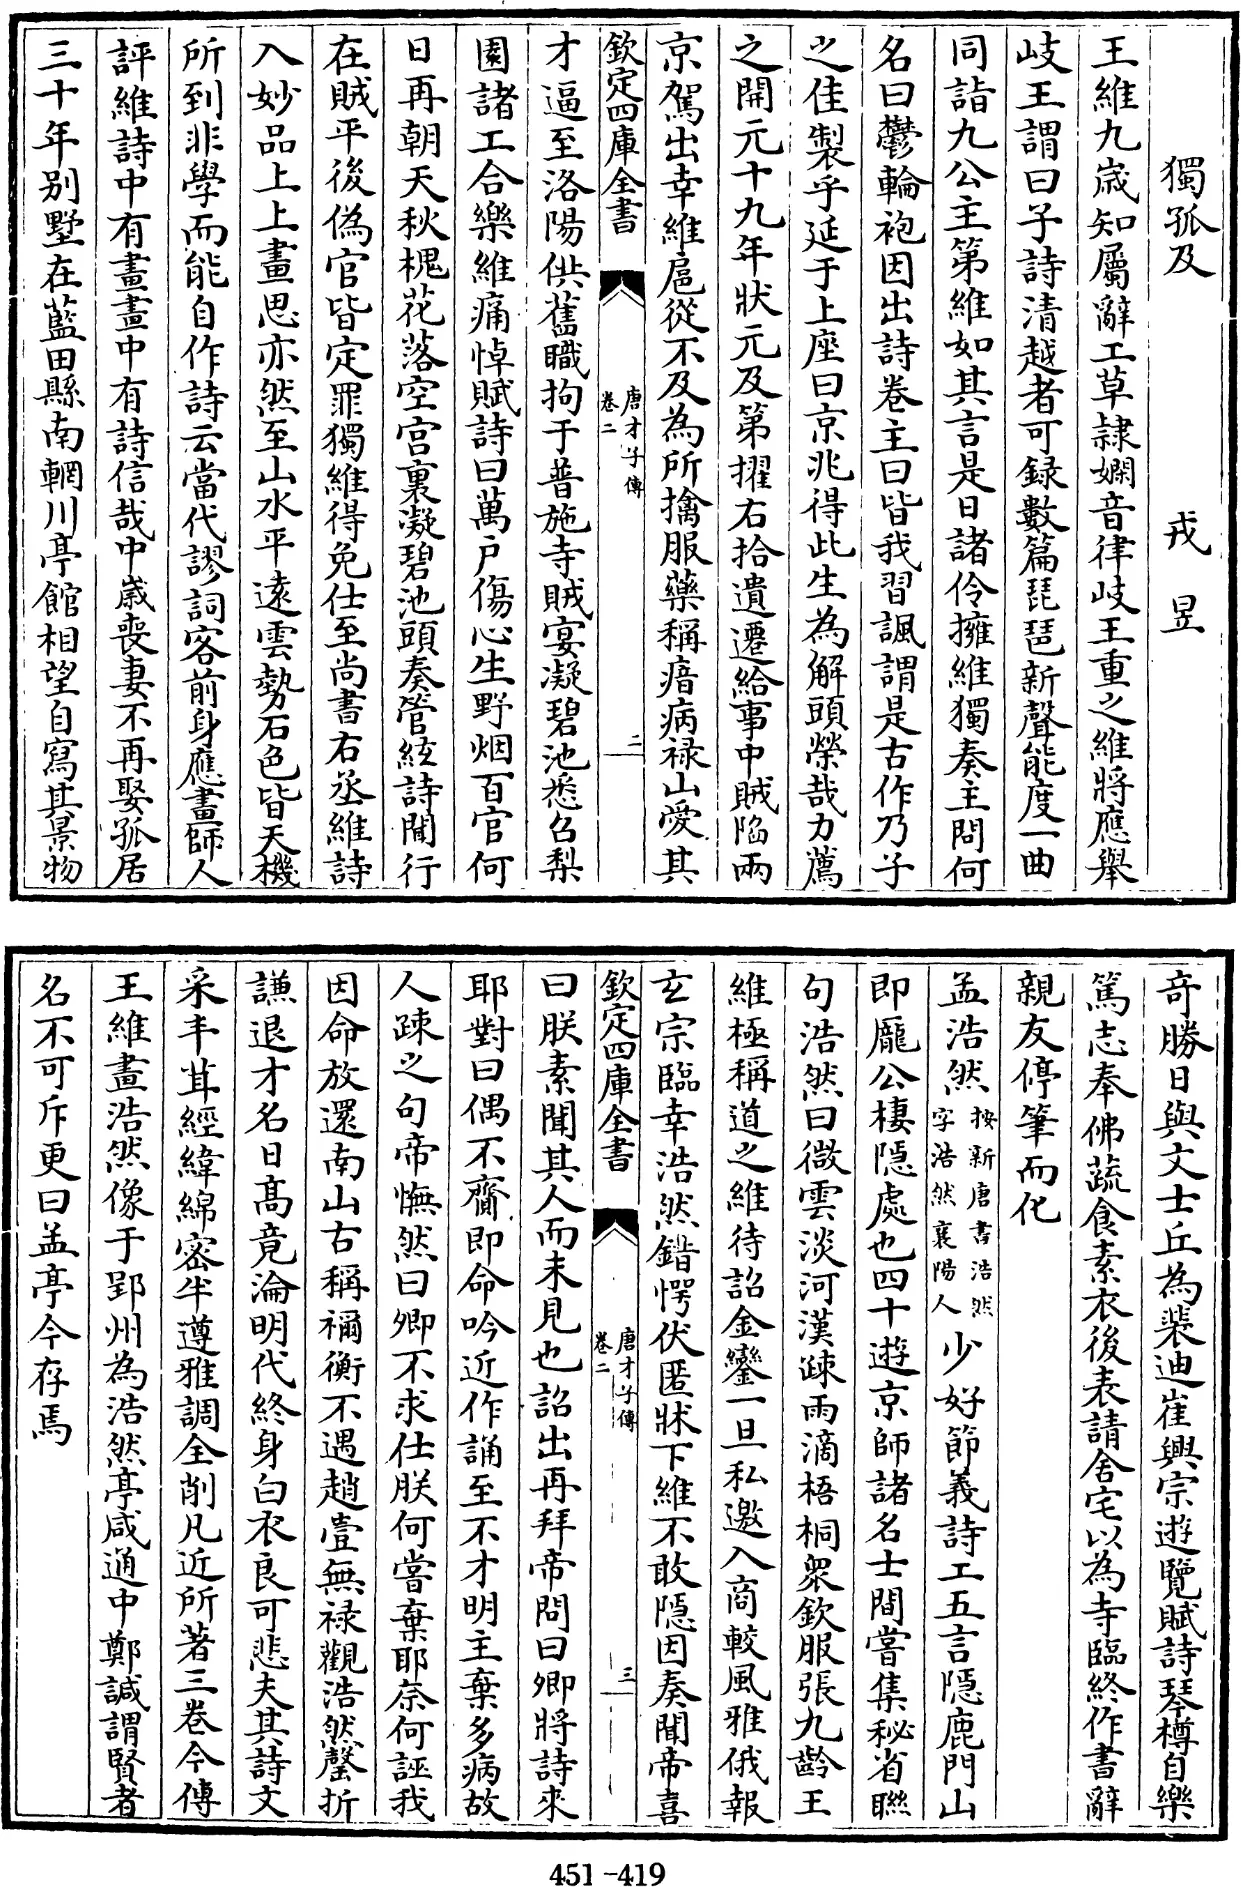 獨孤及 戎昱
王維九歲知屬辭工草隸嫻音律岐王重之維將應舉
岐王謂曰子詩清越者可録數篇琵琶新聲能度一曲
同詣九公主第維如其言是日諸伶擁維獨奏主問何
名曰鬱輪袍因出詩卷主曰皆我習諷謂是古作乃子
之佳製乎延于上座曰京兆得此生為解頭榮哉力薦
之開元十九年狀元及第擢右拾遺遷給事中賊陷兩
京駕出幸維扈從不及為所擒服藥稱瘖病禄山愛其
欽定四庫全書 唐才子傳 卷二 二
才逼至洛陽供舊職拘于普施寺賊宴凝碧池悉召梨
園諸工合樂維痛悼賦詩曰萬戶傷心生野烟百官何
日再朝天秋槐花落空宫裏凝碧池頭奏管絃詩聞行
在賊平後偽官皆定罪獨維得免仕至尚書右丞維詩
入妙品上上畫思亦然至山水平遠雲勢石色皆天機
所到非學而能自作詩云當代謬詞客前身應畫師人
評維詩中有畫畫中有詩信哉中歲喪妻不再娶孤居
三十年别墅在藍田縣南輞川亭館相望自寫其景物
奇勝日與文士丘為裴迪崔興宗遊覽賦詩琴樽自樂
篤志奉佛蔬食素衣後表請舍宅以為寺臨終作書辭
親友停筆而化
孟浩然按新唐書浩然字浩然襄陽人少好節義詩工五言隱鹿門山
即龎公棲隱處也四十遊京師諸名士間嘗集秘省聯
句浩然曰微雲淡河漢疎雨滴梧桐衆欽服張九齡王
維極稱道之維待詔金鑾一旦私邀入商較風雅俄報
玄宗臨幸浩然錯愕伏匿牀下維不敢隱因奏聞帝喜
欽定四庫全書 唐才子傳 卷二 三
曰朕素聞其人而未見也詔出再拜帝問曰卿將詩來
耶對曰偶不齎即命吟近作誦至不才明主棄多病故
人疎之句帝憮然曰卿不求仕朕何嘗棄耶奈何誣我
因命放還南山古稱禰衡不遇趙壹無禄觀浩然罄折
謙退才名日髙竟淪明代終身白衣良可悲夫其詩文
采丰茸經緯綿密半遵雅調全削凡近所著三卷今傳
王維畫浩然像于郢州為浩然亭咸通中鄭諴謂賢者
名不可斥更曰孟亭今存焉
451-419